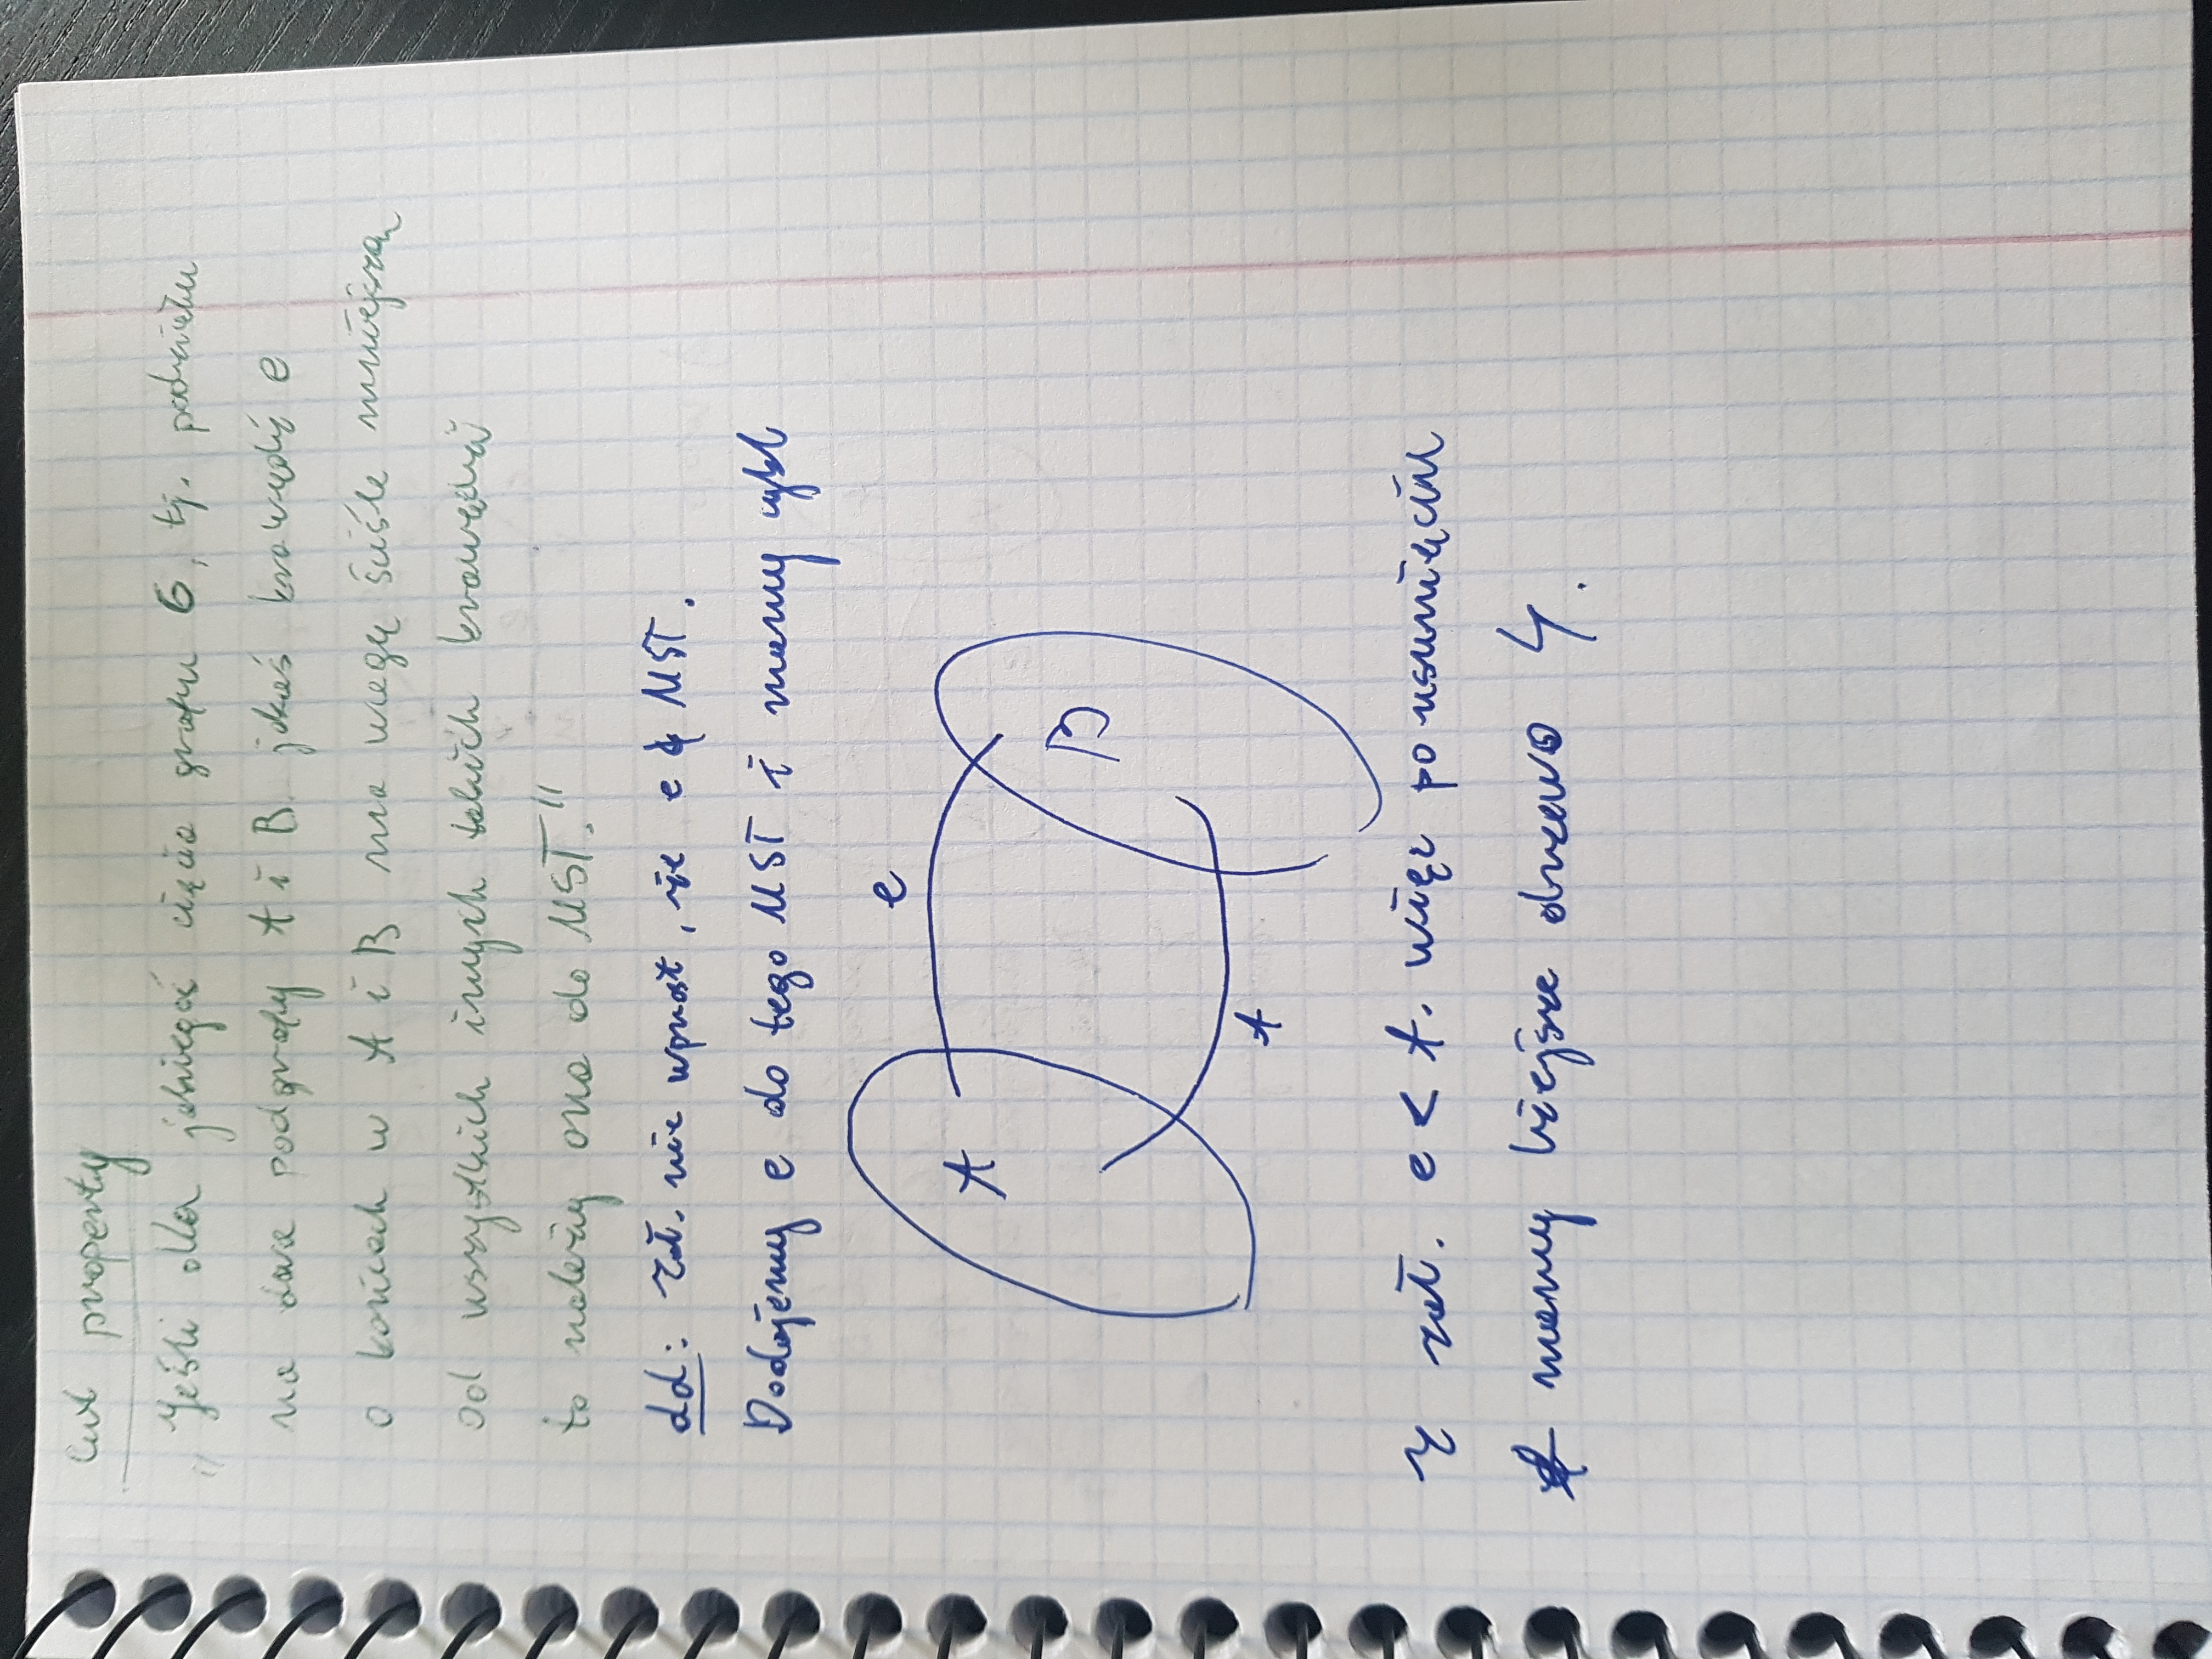 Cut property
„Jeśli dla jakiegoś cięcia grafu G, tj. podziału
na dwa podgrafy A i B jakaś krawędź e
o końcach w A i B ma wagę ściśle mniejszą
od wszystkich innych takich krawędzi
to należy ona do MST."
dd: Zał. nie wprost, że e ∉ MST.
Dodajemy e do tego MST i mamy cykl
e
A
B
f
Z zał. e < f. więc po usunięciu
f mamy lżejsze drzewo ↯.